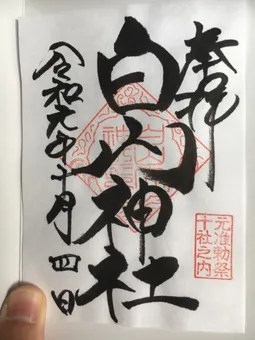 奉拝
元准勅祭
十社之内
白山神社
令和元年十月四日